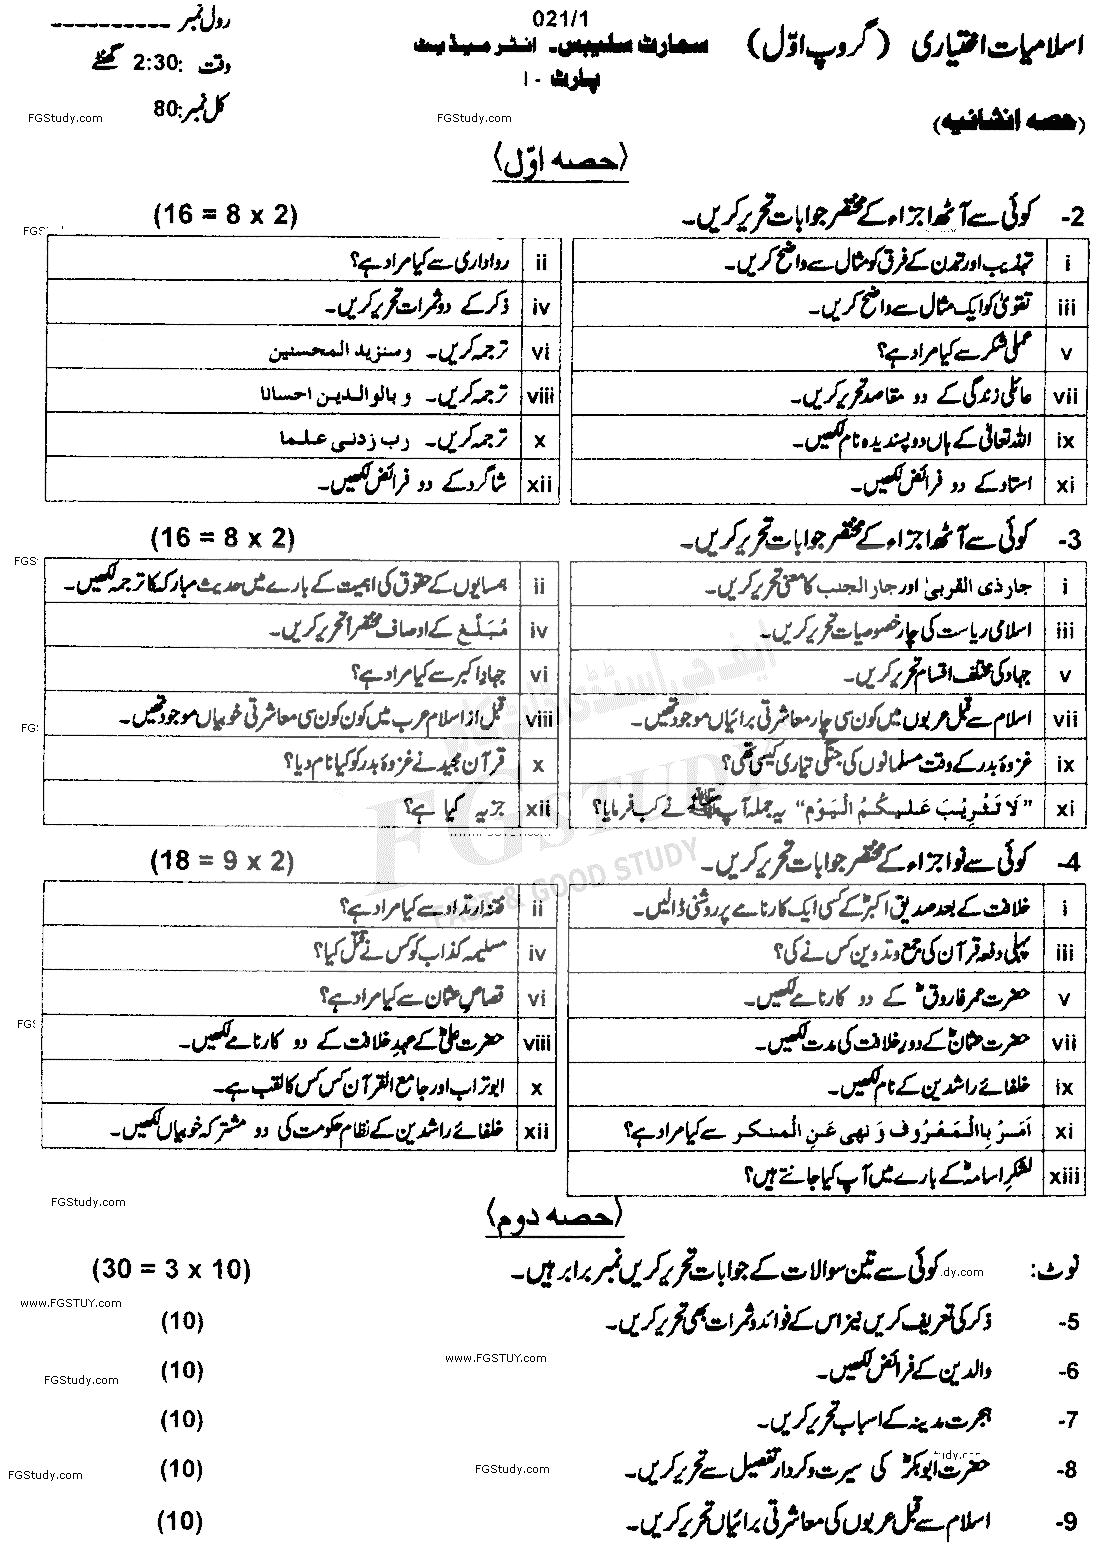 اسلامیات اختیاری (گروپ اوّل) 021/1 رول نمبر ----------
سمارٹ سلیبس۔ انٹرمیڈیٹ وقت :2:30 گھنٹے
پارٹ - I کل نمبر:80
FGStudy.com FGStudy.com
(حصہ انشائیہ)
(حصہ اوّل)
2- کوئی سے آٹھ اجزاء کے مختصر جوابات تحریر کریں۔ (16 = 8 x 2)
i تہذیب اور تمدن کے فرق کو مثال سے واضح کریں۔ ii رواداری سے کیا مراد ہے؟
iii تقویٰ کو ایک مثال سے واضح کریں۔ iv ذکر کے دو ثمرات تحریر کریں۔
v عملی شکر سے کیا مراد ہے؟ vi ترجمہ کریں۔ وسنزید المحسنین
vii عائلی زندگی کے دو مقاصد تحریر کریں۔ viii ترجمہ کریں۔ وبالوالدین احسانا
ix اللہ تعالیٰ کے ہاں دو پسندیدہ نام لکھیں۔ x ترجمہ کریں۔ رب زدنی علما
xi استاد کے دو فرائض لکھیں۔ xii شاگرد کے دو فرائض لکھیں۔
3- کوئی سے آٹھ اجزاء کے مختصر جوابات تحریر کریں۔ (16 = 8 x 2)
i جار ذی القربیٰ اور جار الجنب کا معنی تحریر کریں۔ ii ہمسایوں کے حقوق کی اہمیت کے بارے میں حدیث مبارکہ کا ترجمہ لکھیں۔
iii اسلامی ریاست کی چار خصوصیات تحریر کریں۔ iv مُبَلّغ کے اوصاف مختصراً تحریر کریں۔
v جہاد کی مختلف اقسام تحریر کریں۔ vi جہاد اکبر سے کیا مراد ہے؟
vii اسلام سے قبل عربوں میں کون سی چار معاشرتی برائیاں موجود تھیں۔ viii قبل از اسلام عرب میں کون کون سی معاشرتی خوبیاں موجود تھیں۔
ix غزوۂ بدر کے وقت مسلمانوں کی جنگی تیاری کیسی تھی؟ x قرآن مجید نے غزوۂ بدر کو کیا نام دیا؟
xi "لَا تَثْرِیْبَ عَلَیْکُمُ الْیَوْمَ" یہ جملہ آپ ﷺ نے کب فرمایا؟ xii جزیہ کیا ہے؟
4- کوئی سے نو اجزاء کے مختصر جوابات تحریر کریں۔ (18 = 9 x 2)
i خلافت کے بعد صدیق اکبرؓ کے کسی ایک کارنامے پر روشنی ڈالیں۔ ii فتنہ ارتداد سے کیا مراد ہے؟
iii پہلی دفعہ قرآن کی جمع و تدوین کس نے کی؟ iv مسیلمہ کذاب کو کس نے قتل کیا؟
v حضرت عمر فاروقؓ کے دو کارنامے لکھیں۔ vi قصاصِ عثمان سے کیا مراد ہے؟
vii حضرت عثمانؓ کے دور خلافت کی مدت لکھیں۔ viii حضرت علیؓ کے عہدِ خلافت کے دو کارنامے لکھیں۔
ix خلفائے راشدین کے نام لکھیں۔ x ابوتراب اور جامع القرآن کس کس کا لقب ہے۔
xi اَمَرْ بِاالْمَعْرُوف وَ نَهی عَنِ الْمنکر سے کیا مراد ہے؟ xii خلفائے راشدین کے نظام حکومت کی دو مشترکہ خوبیاں لکھیں۔
xiii لشکرِ اسامہؓ کے بارے میں آپ کیا جانتے ہیں؟
FGStudy.com
(حصہ دوم)
نوٹ: کوئی سے تین سوالات کے جوابات تحریر کریں نمبر برابر ہیں۔ (30 = 3 x 10)
www.FGSTUY.com
5- ذکر کی تعریف کریں نیز اس کے فوائد و ثمرات بھی تحریر کریں۔ (10)
www.FGSTUY.com
6- والدین کے فرائض لکھیں۔ (10)
FGStudy.com
7- ہجرت مدینہ کے اسباب تحریر کریں۔ (10)
8- حضرت ابوبکرؓ کی سیرت و کردار تفصیل سے تحریر کریں۔ (10)
FGStudy.com FGStudy.com
9- اسلام سے قبل عربوں کی معاشرتی برائیاں تحریر کریں۔ (10)
ایف جی اسٹڈی ڈاٹ کام
FGSTUDY
FAST & GOOD STUDY